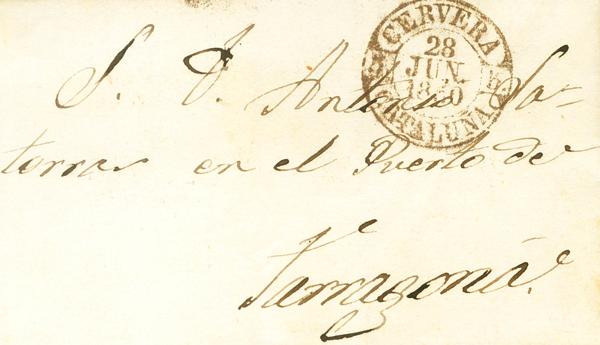 CERVERA
28
JUN.
1850
CATALUÑA
S. D. Antonio Sa=
torras en el Puerto de
Tarragona.